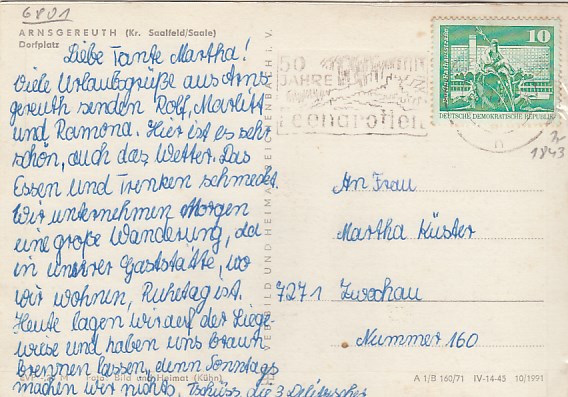 6801
ARNSGEREUTH (Kr. Saalfeld/Saale)
Dorfplatz
Liebe Tante Martha!
Viele Urlaubsgrüße aus Arns-
gereuth senden Rolf, Marlitt
und Ramona. Hier ist es sehr
schön, auch das Wetter. Das
Essen und Trenken schmecket.
Wir unternehmen Morgen
eine große Wanderung, da
in unserer Gaststätte, wo
wir wohnen, Ruhetag ist.
Heute lagen wir auf der Liege-
wiese und haben uns braun
brennen lassen, denn Sonntags
machen wir nichts. Tschüss die 3 Delitzscher
Foto: Bild und Heimat (Kühn)
VERLAG BILD UND HEIMAT REICHENBACH I. V.
50
JAHRE
Feengrotten
10
DEUTSCHE DEMOKRATISCHE REPUBLIK
1843
An Frau
Martha Küster
7271 Zwochau
Nummer 160
A 1/B 160/71 IV-14-45 10/1991